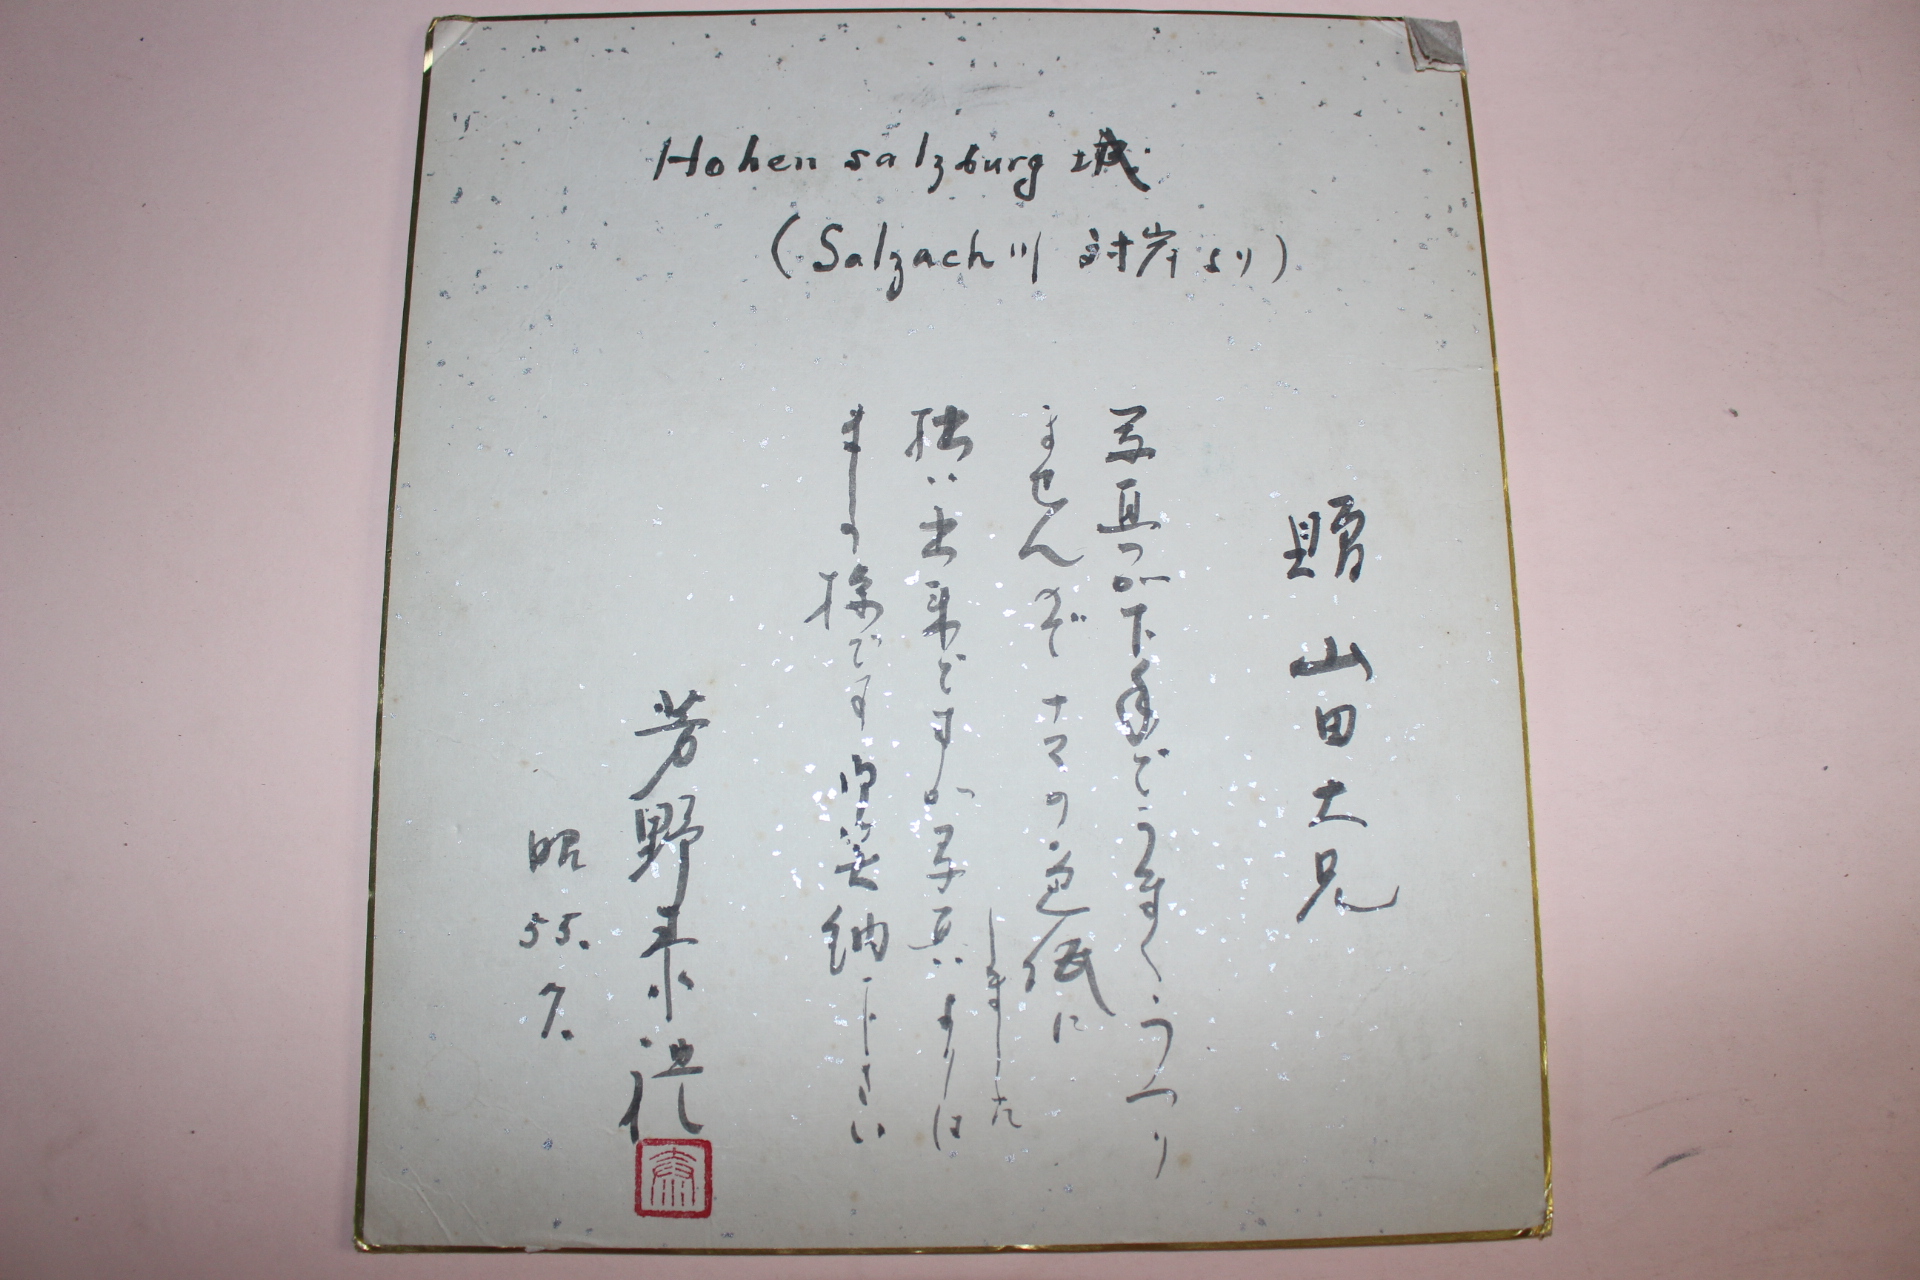 Hohen salzburg 城
(Salzach川 対岸より)
贈 山田大兄
写真が下手でうまくうつり
ませんので ナマの色紙に
しました
拙い出来ですが 写真よりは
ましの様です 御笑納下さい
芳野泰
昭55.7.